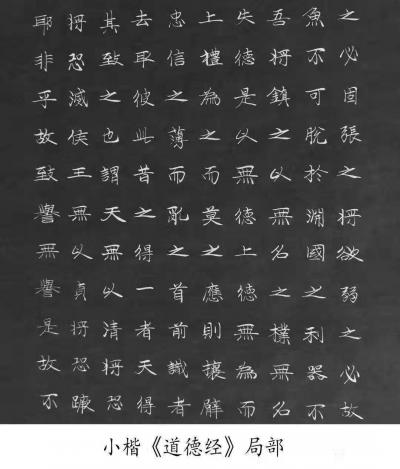 之必固張之將欲弱之必故
魚不可脫於淵國之利器不
吾將鎮之以無名之樸無名
失德是以無德上德無為而
上禮為之而莫之應則攘臂
忠信之薄而亂之首前識者
去取彼此昔之得一者天得
其致之也謂天無以清將恐
將恐滅侯王無以貞將恐蹶
耶非乎故致譽無譽是故不
小楷《道德经》局部